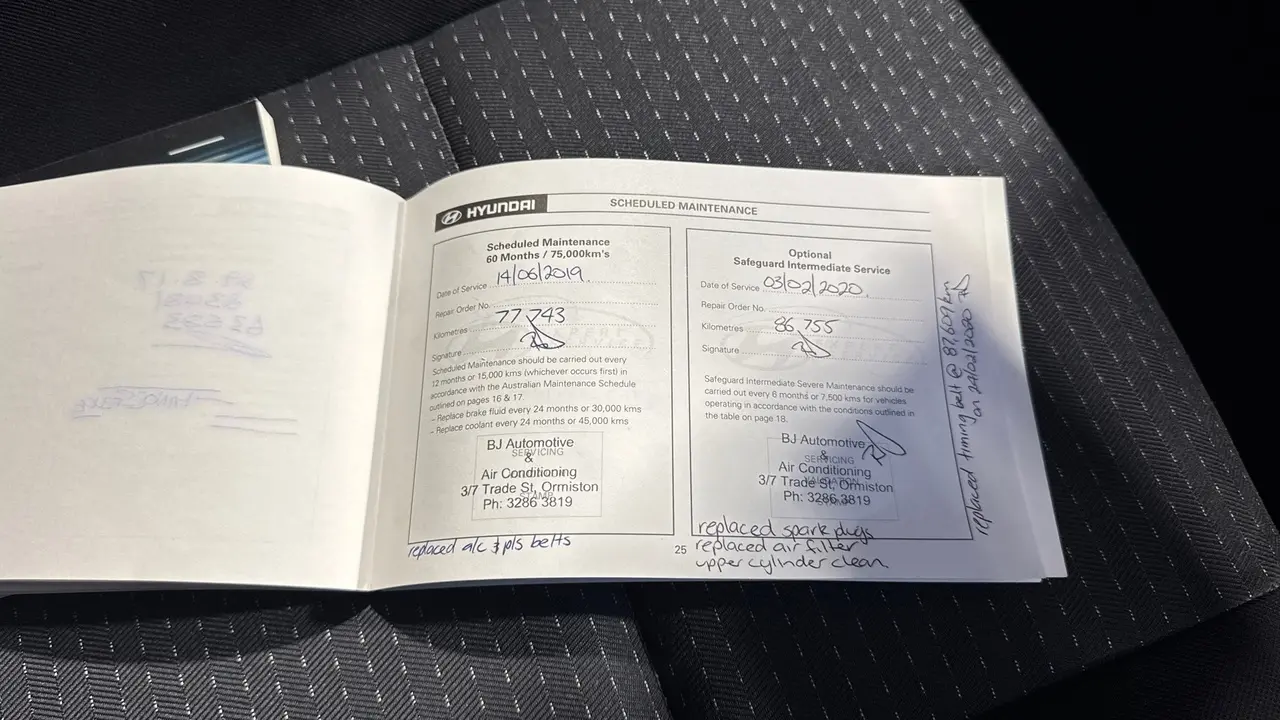 HYUNDAI
SCHEDULED MAINTENANCE
Scheduled Maintenance
60 Months / 75,000km's
Date of Service 14/06/2019
Repair Order No.
Kilometres 77 743
Signature
Scheduled Maintenance should be carried out every
12 months or 15,000 kms (whichever occurs first) in
accordance with the Australian Maintenance Schedule
outlined on pages 16 & 17.
– Replace brake fluid every 24 months or 30,000 kms
– Replace coolant every 24 months or 45,000 kms
BJ Automotive
SERVICING
&
Air Conditioning
3/7 Trade St, Ormiston
STAMP
Ph: 3286 3819
replaced a/c & p/s belts
Optional
Safeguard Intermediate Service
Date of Service 03/02/2020
Repair Order No.
Kilometres 86 755
Signature
Safeguard Intermediate Severe Maintenance should be
carried out every 6 months or 7,500 kms for vehicles
operating in accordance with the conditions outlined in
the table on page 18.
BJ Automotive
&
SERVICING
Air Conditioning
3/7 Trade St, Ormiston
Ph: 3286 3819
STAMP
replaced spark plugs
replaced air filter
upper cylinder clean
25
replaced timing belt @ 87,609 km
on 24/02/2020